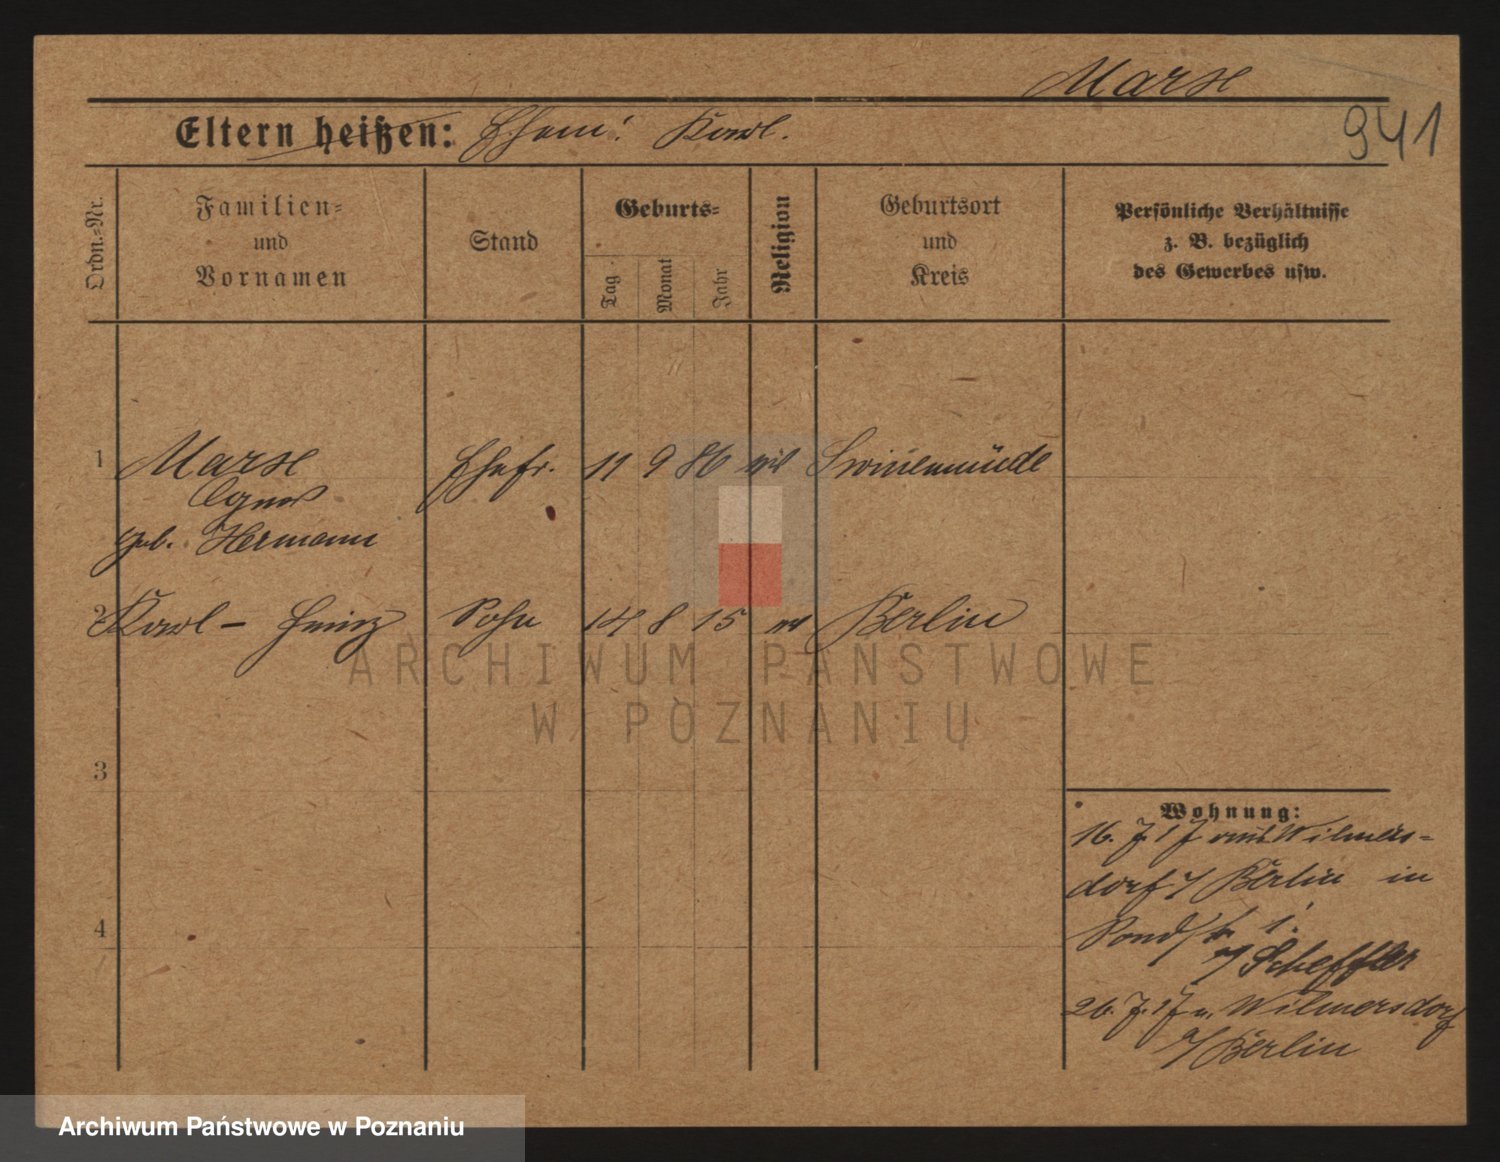 Marx
941
Eltern heißen: Ehem: Karl.
Ordn.-Nr.
Familien-
und
Vornamen
Stand
Geburts-
Tag
Monat
Jahr
Religion
Geburtsort
und
Kreis
Persönliche Verhältnisse
z. B. bezüglich
des Gewerbes usw.
1 Marx Ehefr. 11 9 86 Swinemünde
Agnes
geb. Hermann
2 Karl-Heinz Sohn 14 8 15 Berlin
3
4
Wohnung:
16. 7. 17 aus Wilmers-
dorf / Berlin in
1.
Scheffler
26. 7. 17 n. Wilmersdorf
/ Berlin
ARCHIWUM PAŃSTWOWE
W POZNANIU
Archiwum Państwowe w Poznaniu